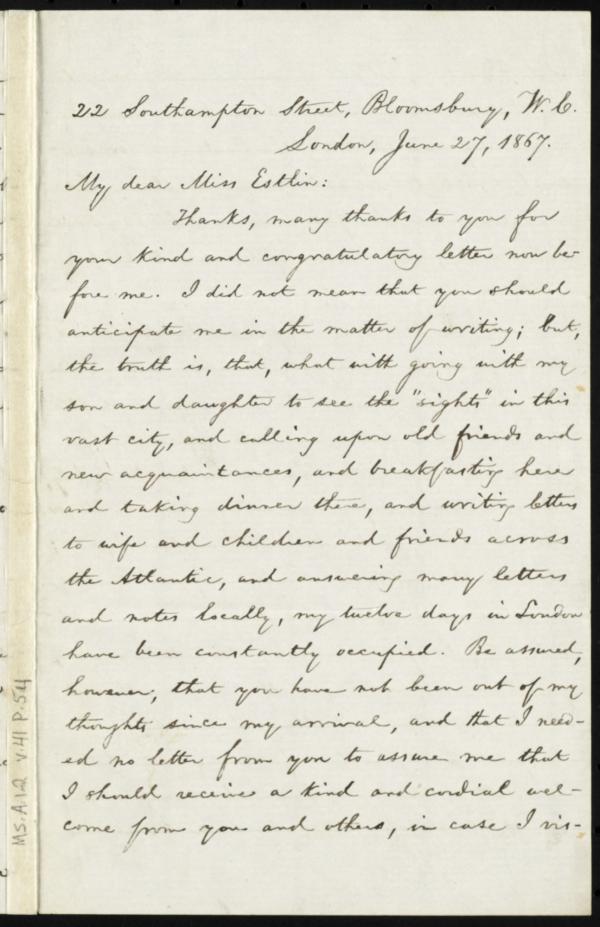 22 Southampton Street, Bloomsbury, W. C.
London, June 27, 1867.
My dear Miss Estlin:
Thanks, many thanks to you for
your kind and congratulatory letter now be-
fore me. I did not mean that you should
anticipate me in the matter of writing; but,
the truth is, that, what with going with my
son and daughter to see the "sights" in this
vast city, and calling upon old friends and
new acquaintances, and breakfasting here
and taking dinner there, and writing letters
to wife and children and friends across
the Atlantic, and answering many letters
and notes locally, my twelve days in London
have been constantly occupied. Be assured,
however, that you have not been out of my
thoughts since my arrival, and that I need-
ed no letter from you to assure me that
I should receive a kind and cordial wel-
come from you and others, in case I vis-
MS. A.1.2 v.41 P.54